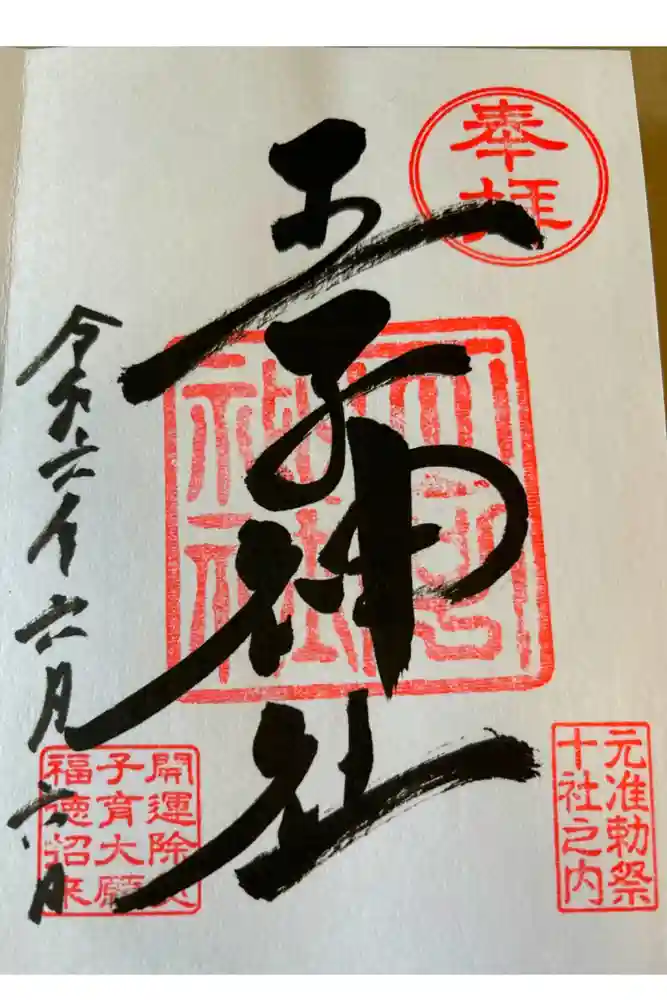 奉拝
王子神社
王子神社
元准勅祭
十社之内
令和六年六月六日
開運除災
子育大願
福徳招来